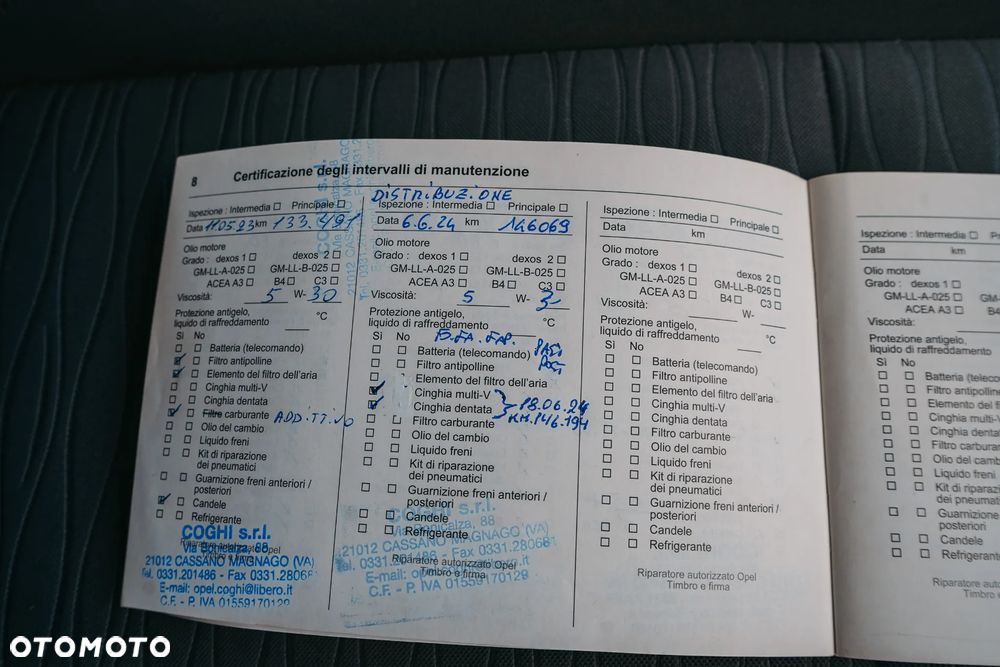 8 Certificazione degli intervalli di manutenzione
Ispezione : Intermedia □ Principale □
Data 11.05.23 km 133.491
Olio motore
Grado : dexos 1 □ dexos 2 □
GM-LL-A-025 □ GM-LL-B-025 □
ACEA A3 □ B4 □ C3 □
Viscosità: 5 W- 30
Protezione antigelo,
liquido di raffreddamento °C
Sì No
Batteria (telecomando)
Filtro antipolline
Elemento del filtro dell'aria
Cinghia multi-V
Cinghia dentata
Filtro carburante ADDITIVO
Olio del cambio
Liquido freni
Kit di riparazione
dei pneumatici
Guarnizione freni anteriori /
posteriori
Candele
Refrigerante
Riparatore autorizzato Opel
Timbro e firma
COGHI s.r.l.
Via Bonicalza, 88
21012 CASSANO MAGNAGO (VA)
Tel. 0331.201486 - Fax 0331.280681
E-mail: opel.coghi@libero.it
C.F. - P. IVA 01559170129
DISTRIBUZIONE
Ispezione : Intermedia □ Principale □
Data 6.6.24 km 146069
Olio motore
Grado : dexos 1 □ dexos 2 □
GM-LL-A-025 □ GM-LL-B-025 □
ACEA A3 □ B4 □ C3 □
Viscosità: 5 W- 3
Protezione antigelo,
liquido di raffreddamento °C
Sì No
Batteria (telecomando)
Filtro antipolline
Elemento del filtro dell'aria
Cinghia multi-V
Cinghia dentata
18.06.24
KM.146.194
Filtro carburante
Olio del cambio
Liquido freni
Kit di riparazione
dei pneumatici
Guarnizione freni anteriori /
posteriori
Candele
Refrigerante
Riparatore autorizzato Opel
Timbro e firma
s.r.l.
Via Bonicalza, 88
21012 CASSANO MAGNAGO (VA)
Tel. 0331.201486 - Fax 0331.280681
E-mail:
C.F. - P. IVA 01559170129
Ispezione : Intermedia □ Principale □
Data km
Olio motore
Grado : dexos 1 □ dexos 2 □
GM-LL-A-025 □ GM-LL-B-025 □
ACEA A3 □ B4 □ C3 □
Viscosità: W-
Protezione antigelo,
liquido di raffreddamento °C
Sì No
Batteria (telecomando)
Filtro antipolline
Elemento del filtro dell'aria
Cinghia multi-V
Cinghia dentata
Filtro carburante
Olio del cambio
Liquido freni
Kit di riparazione
dei pneumatici
Guarnizione freni anteriori /
posteriori
Candele
Refrigerante
Riparatore autorizzato Opel
Timbro e firma
Ispezione : Intermedia □
Data km
Olio motore
Grado : dexos 1 □
GM-LL-A-025 □
ACEA A3 □
Viscosità:
Protezione antigelo,
liquido di raffreddamento
Sì No
Batteria
Filtro antipolline
Elemento del
Cinghia multi-V
Cinghia dentata
Filtro
Olio del
Liquido freni
Kit di
dei
Guarnizione
posteriori
Candele
Refrigerante
Riparatore
Timbro e
OTOMOTO